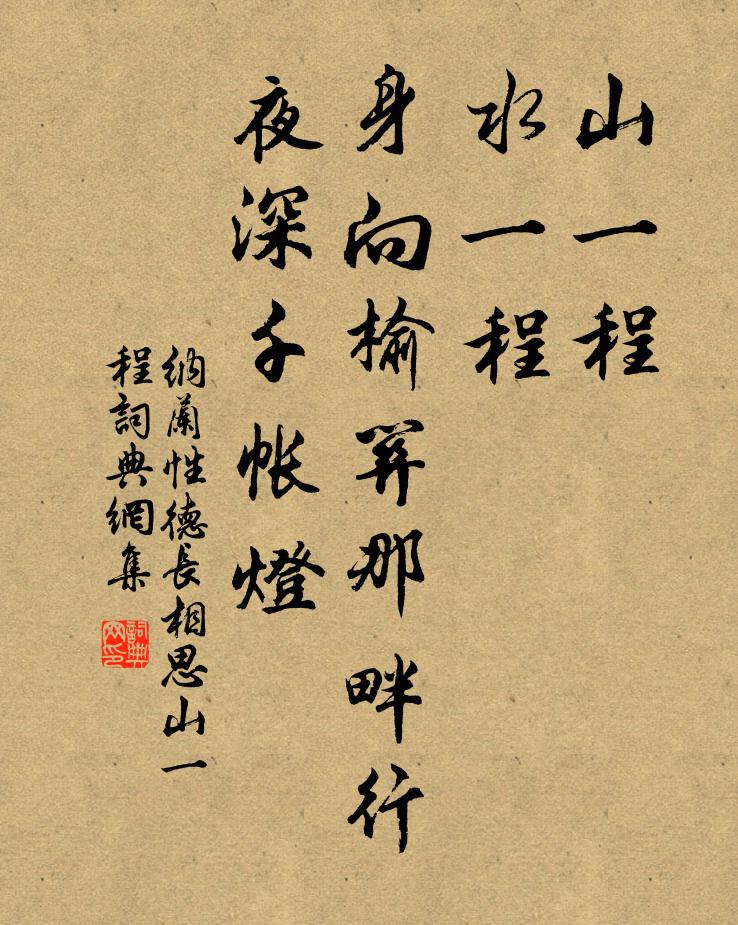 山一程
水一程
身向榆关那畔行
夜深千帐燈
納蘭性德長相思山一
程詞典網集
詞典
网印